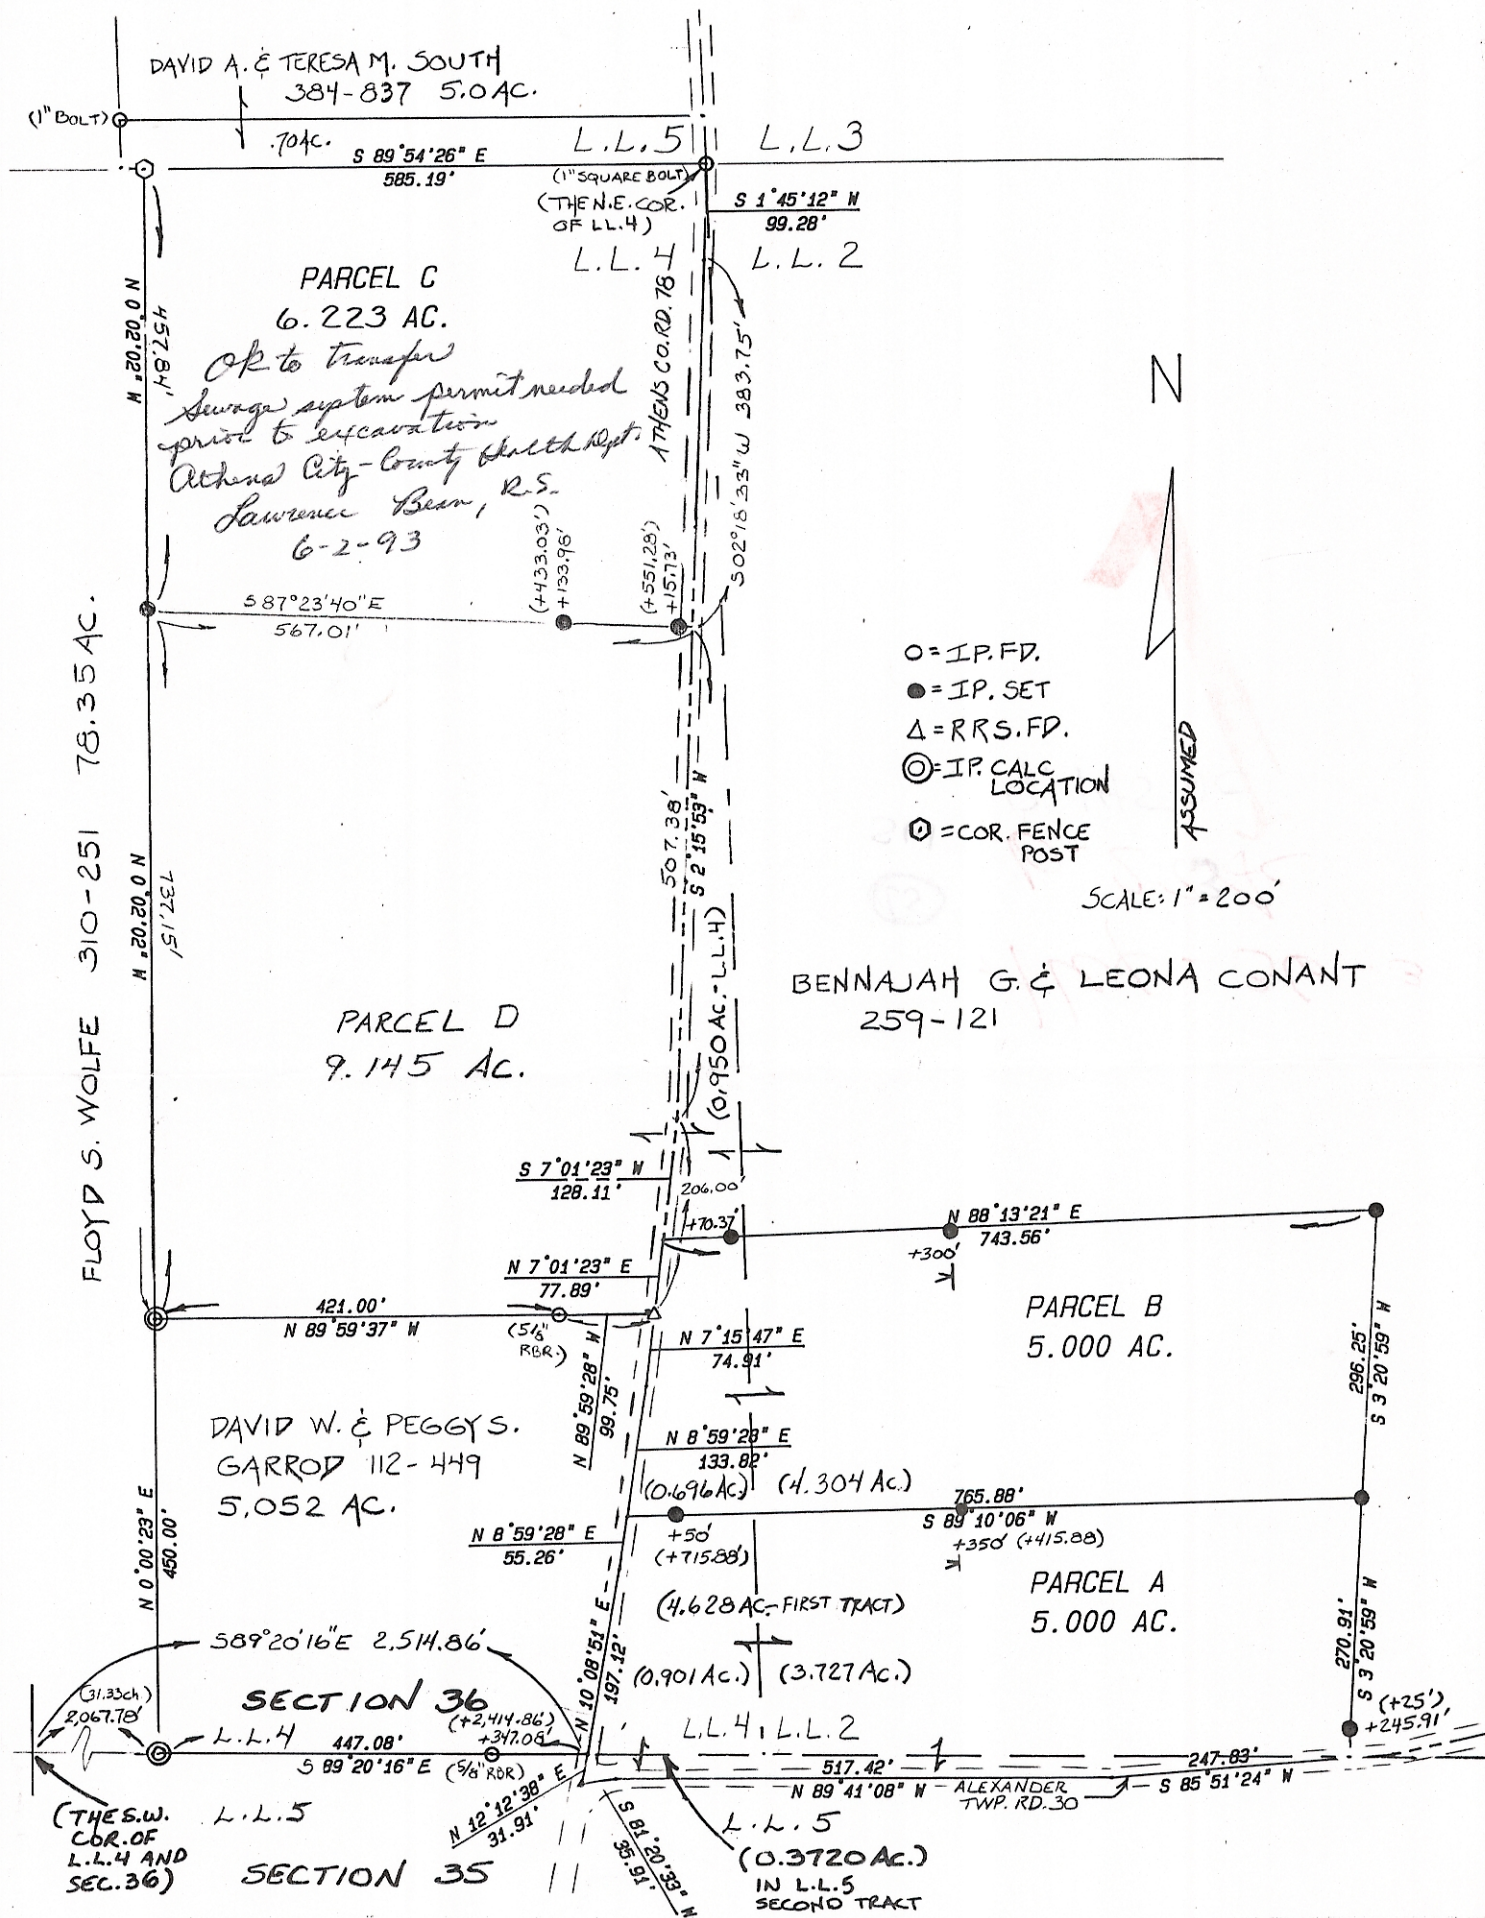 DAVID A. & TERESA M. SOUTH
384-837 5.0 AC.
(1" BOLT)
.70 AC.
S 89°54'26" E
585.19'
L.L.5
L.L.3
(1" SQUARE BOLT)
(THE N.E. COR.
OF LL.4)
S 1°45'12" W
99.28'
L.L.4
L.L.2
PARCEL C
6.223 AC.
N 0°02'02" W
457.84'
OK to transfer
Sewage system permit needed
prior to excavation
Athens City-County Health Dept.
Lawrence Bean, R.S.
6-2-93
ATHENS CO. RD. 78
S02°18'33" W 383.75'
N
(+433.03')
+133.98'
(+551.28')
+15.73'
S 87°23'40" E
567.01'
O = I.P. FD.
● = I.P. SET
△ = R.R.S. FD.
◎ = I.P. CALC
LOCATION
⬡ = COR. FENCE
POST
ASSUMED
SCALE: 1" = 200'
FLOYD S. WOLFE 310-251 78.35 AC.
N 0°02'02" W
737.15'
507.38'
S 2°15'53" W
(0.950 AC.- L.L.4)
BENNAJAH G. & LEONA CONANT
259-121
PARCEL D
9.145 AC.
S 7°01'23" W
128.11'
206.00'
+70.37'
N 88°13'21" E
743.56'
+300'
N 7°01'23" E
77.89'
421.00'
N 89°59'37" W
(5/8"
RBR.)
N 89°59'28" W
99.75'
N 7°15'47" E
74.91'
PARCEL B
5.000 AC.
296.25'
S 3°20'59" W
DAVID W. & PEGGY S.
GARROD 112-449
5.052 AC.
N 8°59'28" E
133.82'
(0.696 AC.) (4.304 AC.)
765.88'
S 89°10'06" W
+50'
(+715.88')
+350' (+415.88)
N 8°59'28" E
55.26'
N 0°00'23" E
450.00'
PARCEL A
5.000 AC.
(4.628 AC.- FIRST TRACT)
270.91'
S 3°20'59" W
S89°20'16"E 2,514.86'
N 10°08'51" E
197.12'
(0.901 AC.) (3.727 AC.)
(31.33ch.)
2,067.78'
SECTION 36
L.L.4
447.08'
S 89°20'16" E
(+2,414.86')
+347.08'
(5/8" RBR)
L.L.4 L.L.2
(+25')
+245.91'
517.42'
N 89°41'08" W
ALEXANDER
TWP. RD. 30
247.83'
S 85°51'24" W
(THE S.W.
COR. OF
L.L.4 AND
SEC.36)
L.L.5
SECTION 35
N 12°12'38" E
31.91'
S 81°20'33" W
35.91'
L.L.5
(0.3720 AC.)
IN L.L.5
SECOND TRACT